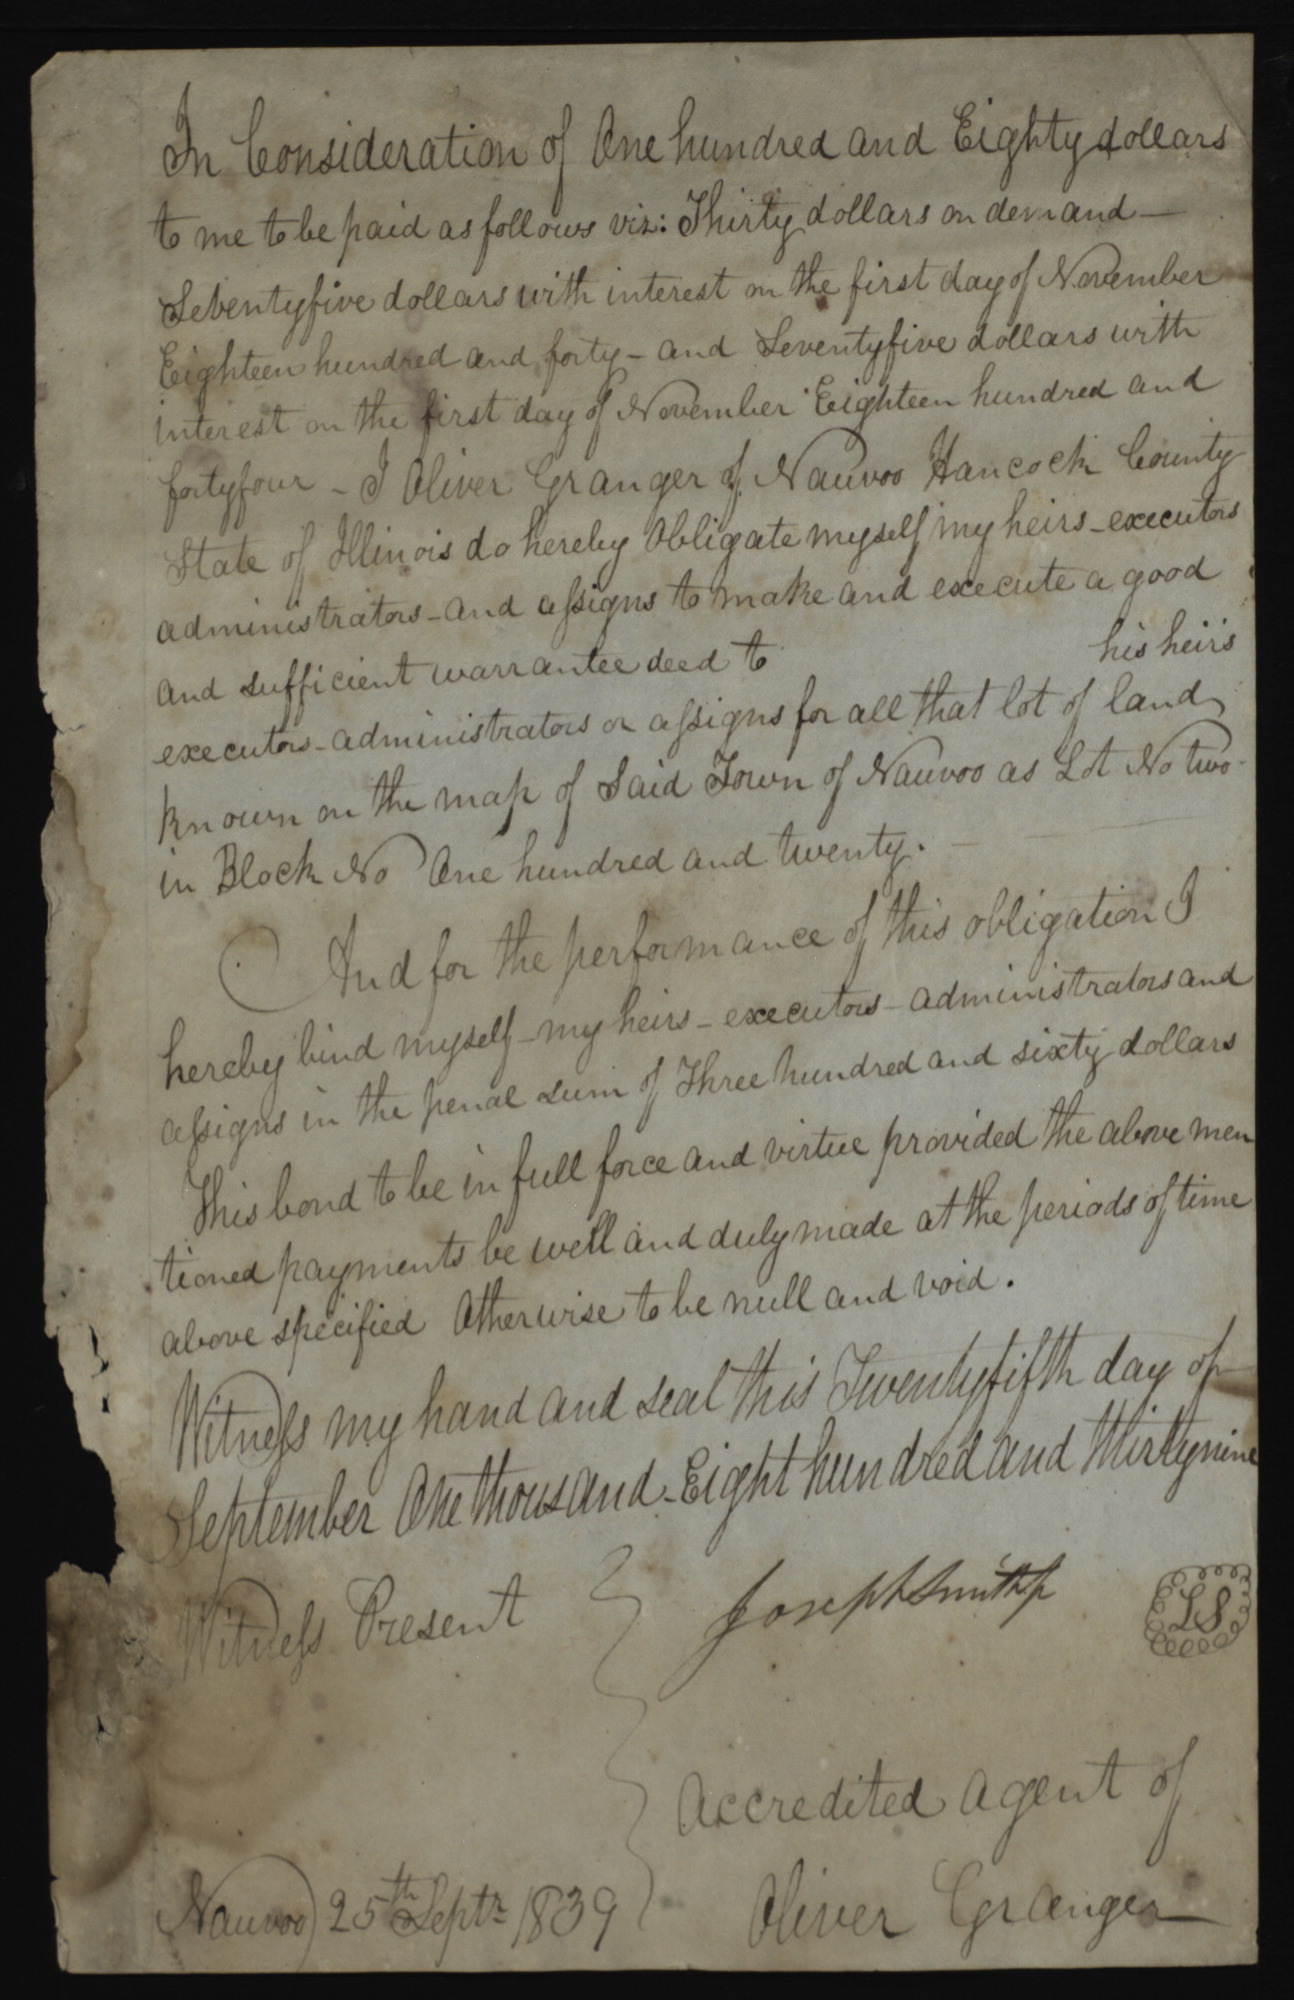 In Consideration of One hundred and Eighty dollars
to me to be paid as follows viz: Thirty dollars on demand —
Seventyfive dollars with interest on the first day of November
Eighteen hundred and forty - and Seventyfive dollars with
interest on the first day of November Eighteen hundred and
fortyfour - I Oliver Granger of Nauvoo Hancock County
State of Illinois do hereby Obligate myself my heirs - executors
administrators - and assigns to make and execute a good
and sufficient warrantee deed to his heirs
executors - administrators or assigns for all that lot of land
known on the map of Said Town of Nauvoo as Lot No two
in Block No One hundred and twenty. —
And for the performance of this obligation I
hereby bind myself - my heirs - executors - administrators and
assigns in the penal sum of Three hundred and sixty dollars
This bond to be in full force and virtue provided the above men
tioned payments be well and duly made at the periods of time
above specified Otherwise to be null and void.
Witness my hand and seal this Twentyfifth day of
September One thousand - Eight hundred and thirtynine
Witness Present
Joseph Smith Jr
LS
Accredited Agent of
Nauvoo 25th Septr 1839
Oliver Granger